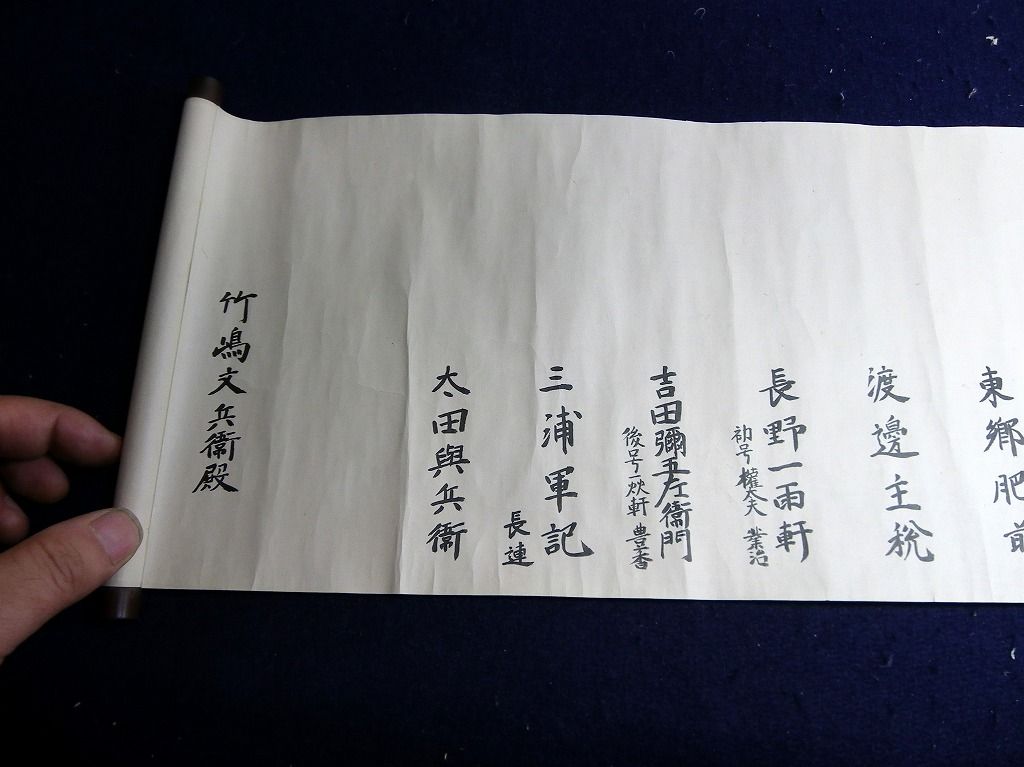 東郷肥前
渡邊主税
長野一雨軒
初号權太夫 業治
吉田彌五左衞門
後号一炊軒 豊香
三浦軍記
長連
太田與兵衞
竹嶋文兵衞殿